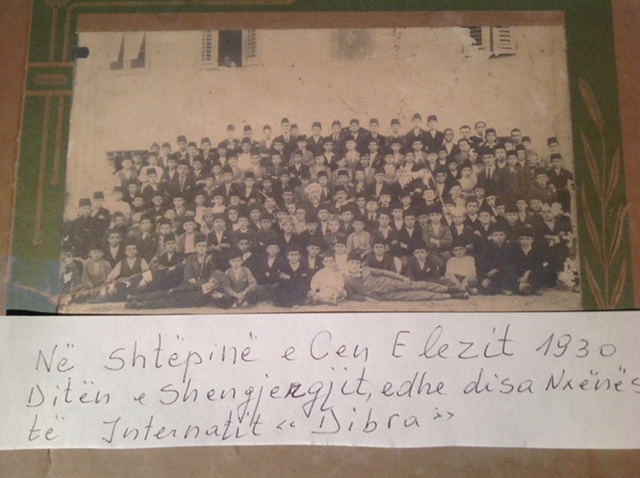 Në shtëpinë e Cen Elezit 1930
Ditën e Shengjergjit, edhe disa Nxënës
të Internatit « Dibra »